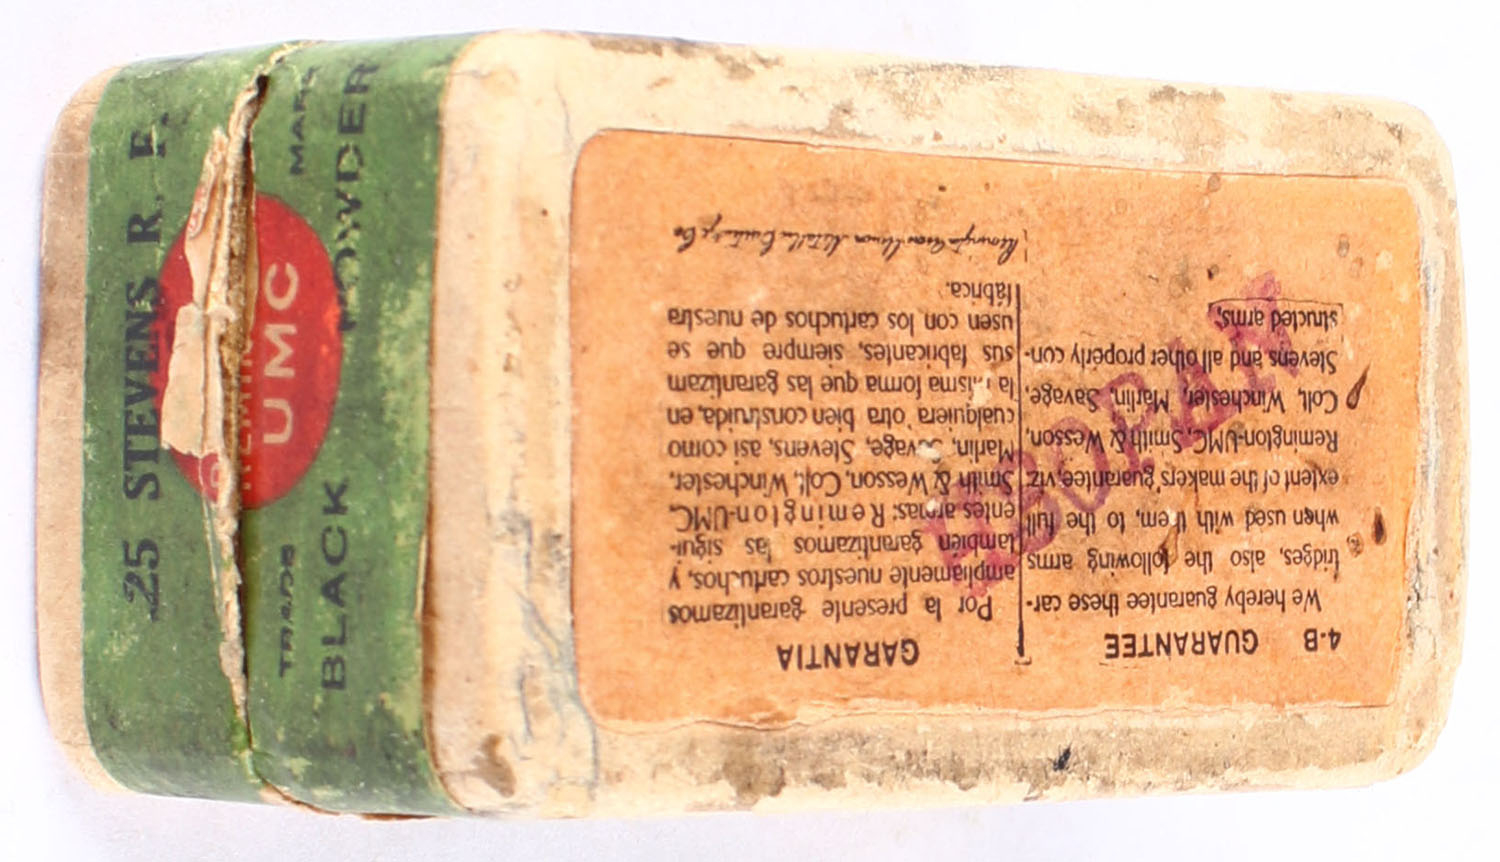 .25 STEVENS R. F.
TRADE MARK
REMIN
UMC
BLACK POWDER
4-B GUARANTEE
We hereby guarantee these car-
tridges, also the following arms
when used with them, to the full
extent of the makers' guarantee, viz
Remington-UMC, Smith & Wesson,
Colt, Winchester, Marlin, Savage,
Stevens and all other properly con-
structed arms,
GARANTIA
Por la presente garantizamos
ampliamente nuestros cartuchos, y
tambien garantizamos las sigui-
entes armas: Remington-UMC,
Smith & Wesson, Colt, Winchester,
Marlin, Savage, Stevens, asi como
cualquiera otra bien construida, en
la misma forma que las garantizam
sus fabricantes, siempre que se
usen con los cartuchos de nuestra
fabrica.